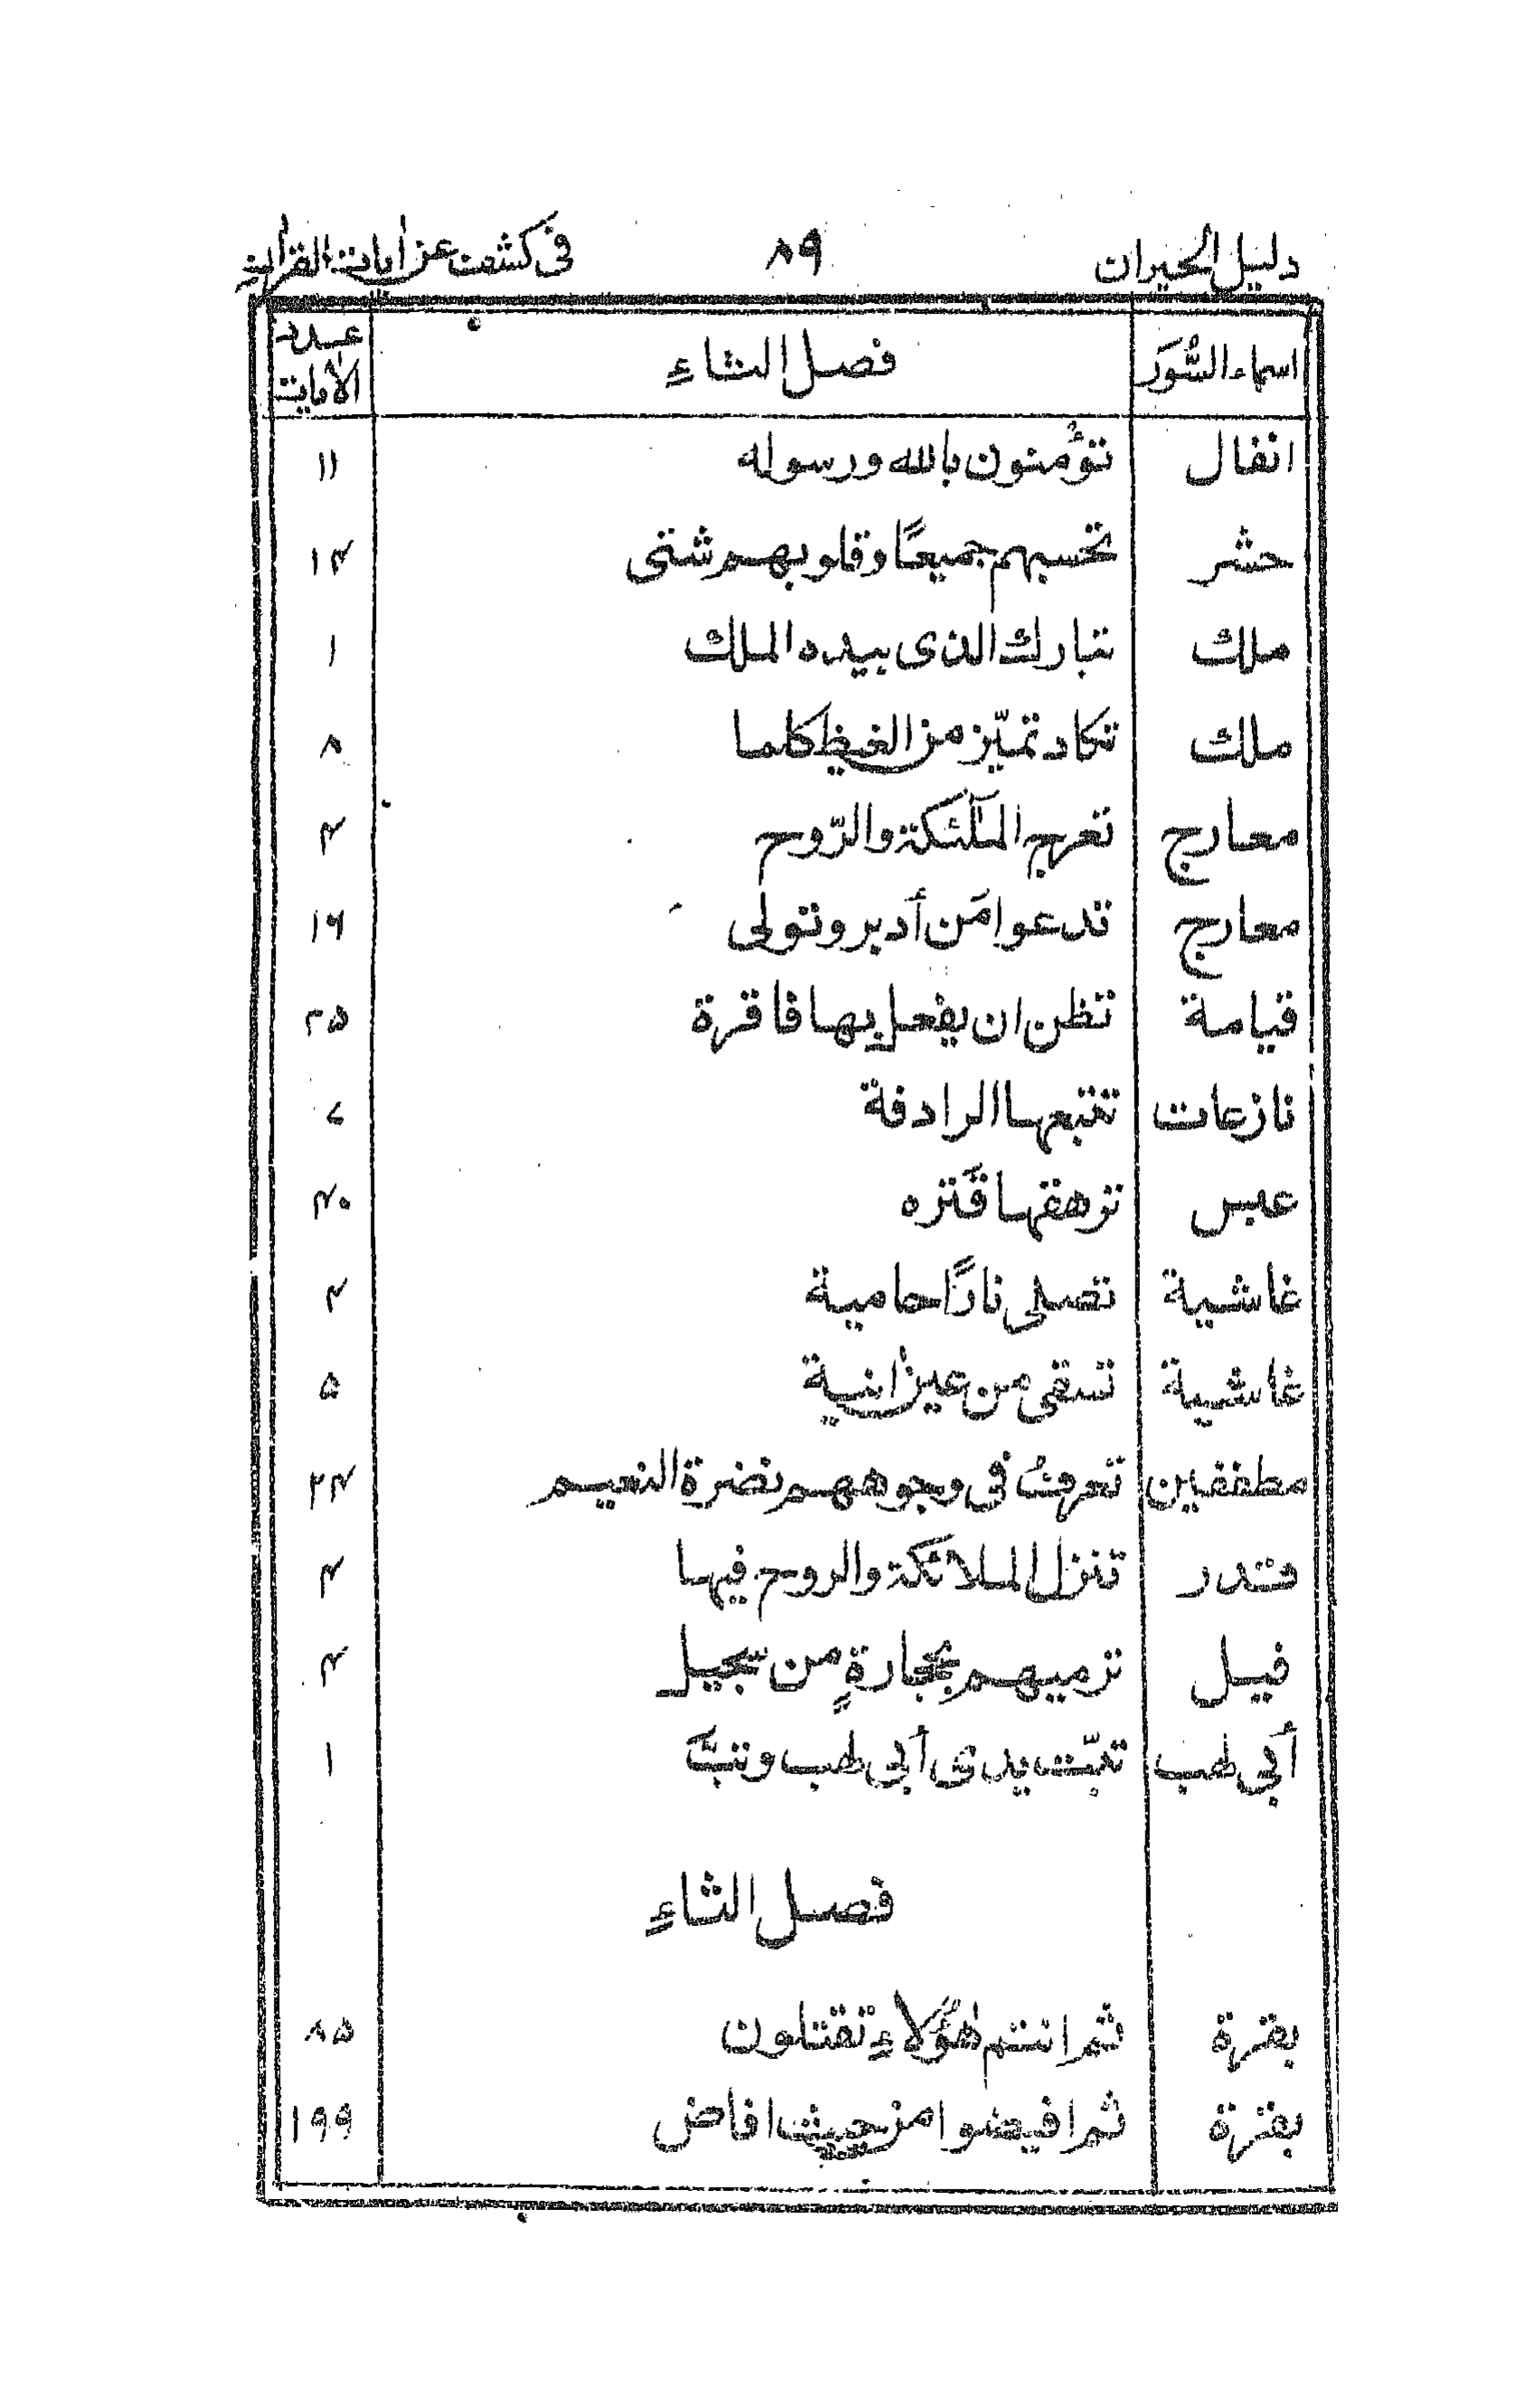 دليل الحيران ۸۹ فى كشف عن أيات القرأن
اسماء السُّوَر فصل التاءِ عدد الأيات
انفال تؤُمنون بالله ورسوله ۱۱
حشر تحسبهم جميعًا وقلوبهم شتى ۱۴
ملك تبارك الذى بيده الملك ۱
ملك تكاد تميّز من الغيظ كلما ۸
معارج تعرج الملٰٓئكة والرّوح ۴
معارج تدعوا مَن أدبر وتولى ۱۷
قيامة تظن ان يفعل بها فاقرة ۲۵
نازعات تتبعها الرادفة ۷
عبس ترهقها قَتره ۴۰
غاشية تصلى نارًا حامية ۴
غاشية تسقى من عين أنية ۵
مطففين تعرفُ فى وجوههم نضرة النعيم ۲۴
قدر تنزل الملائكة والروح فيها ۴
فيل ترميهم بحجارةٍ من سجيل ۴
أبى لهب تبّت يدى أبى لهب وتبَّ ۱
فصل الثاءِ
بقرة ثم انتم هٰؤُلاءِ تقتلون ۸۵
بقرة ثم افيضوا من حيث افاض ۱۹۹